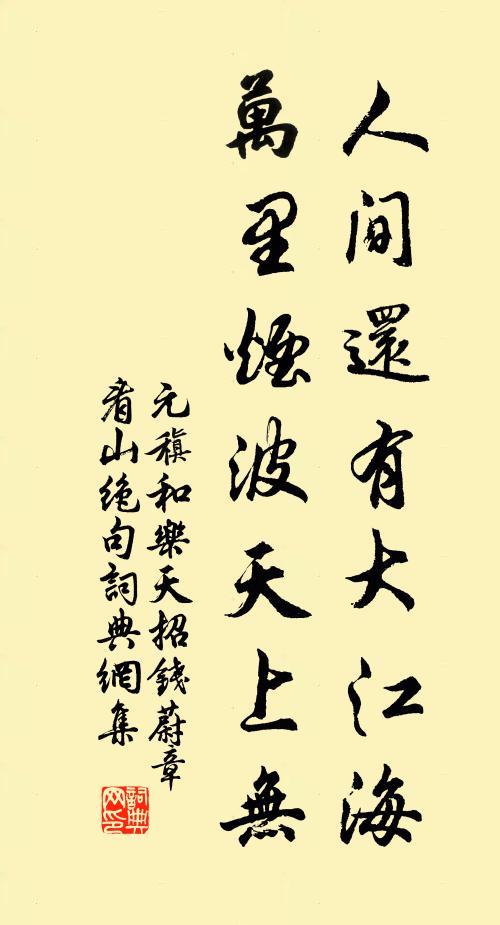 人間還有大江海
萬里煙波天上無
元稹和樂天招錢蔚章
看山絶句詞典網集
詞典網印